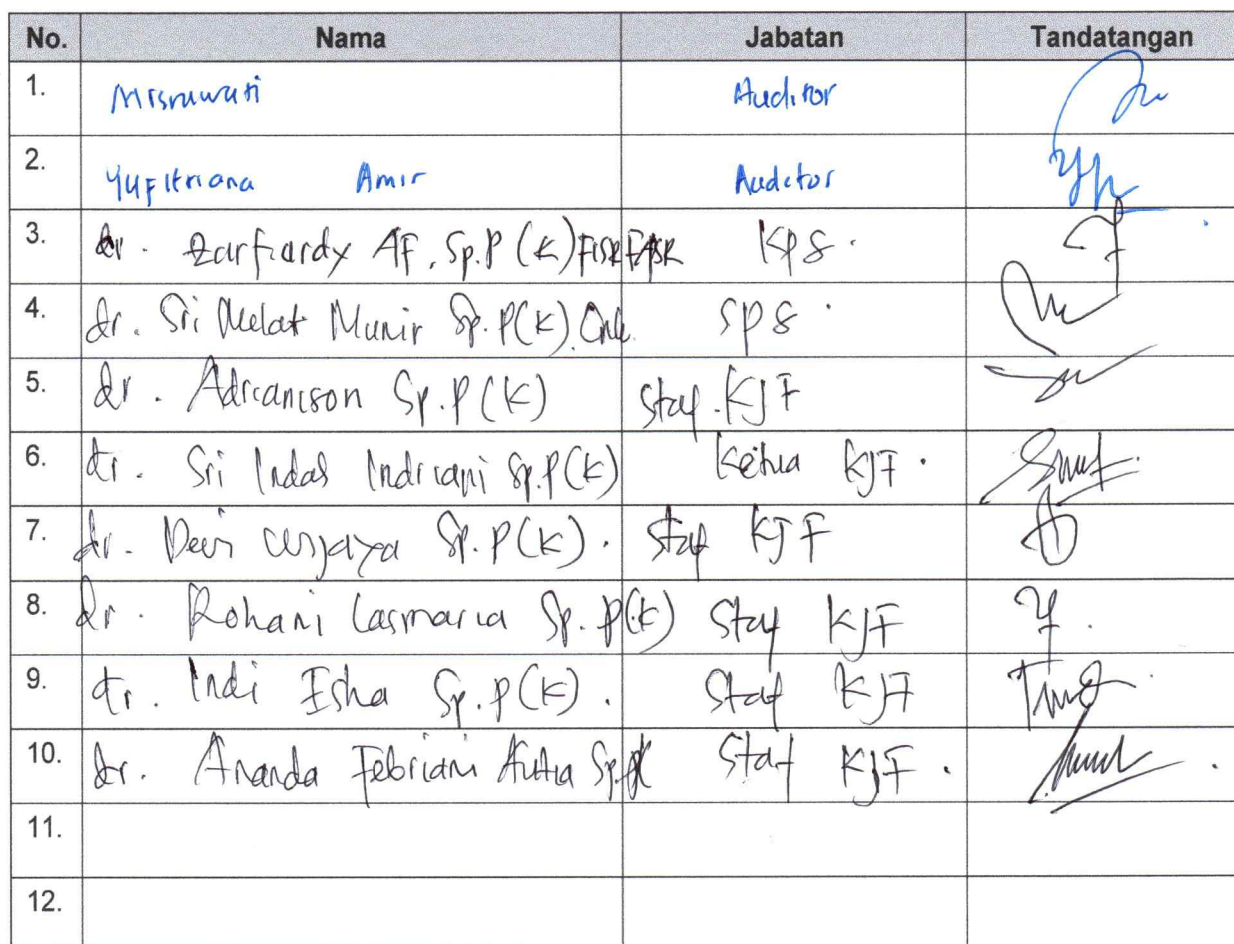 No. Nama Jabatan Tandatangan
1. Misrawati Auditor
2. Yufitriana Amir Auditor
3. dr. Zarfiardy AF, Sp.P (K) FISR FAPSR KPS.
4. dr. Sri Melat Munir Sp.P(K).Onk. SPS.
5. dr. Adrianison Sp.P (K) Staf KJF
6. dr. Sri Indas Indriani Sp.P(K) Ketua KJF.
7. dr. Dewi Wijaya Sp.P(K). Staf KJF
8. dr. Rohani Lasmaria Sp.P(K) Staf KJF
9. dr. Indi Esha Sp.P(K). Staf KJF
10. dr. Ananda Febriani Sp.PK Staf KJF.
11.
12.